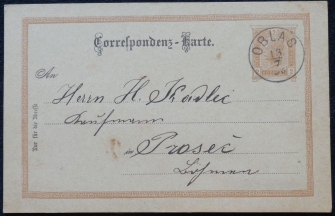 Correspondenz-Karte.
OBLAS
13
7
An
Herrn H. Kadlec
Kaufmann
in Proseč
Böhmen
Nur für die Adresse